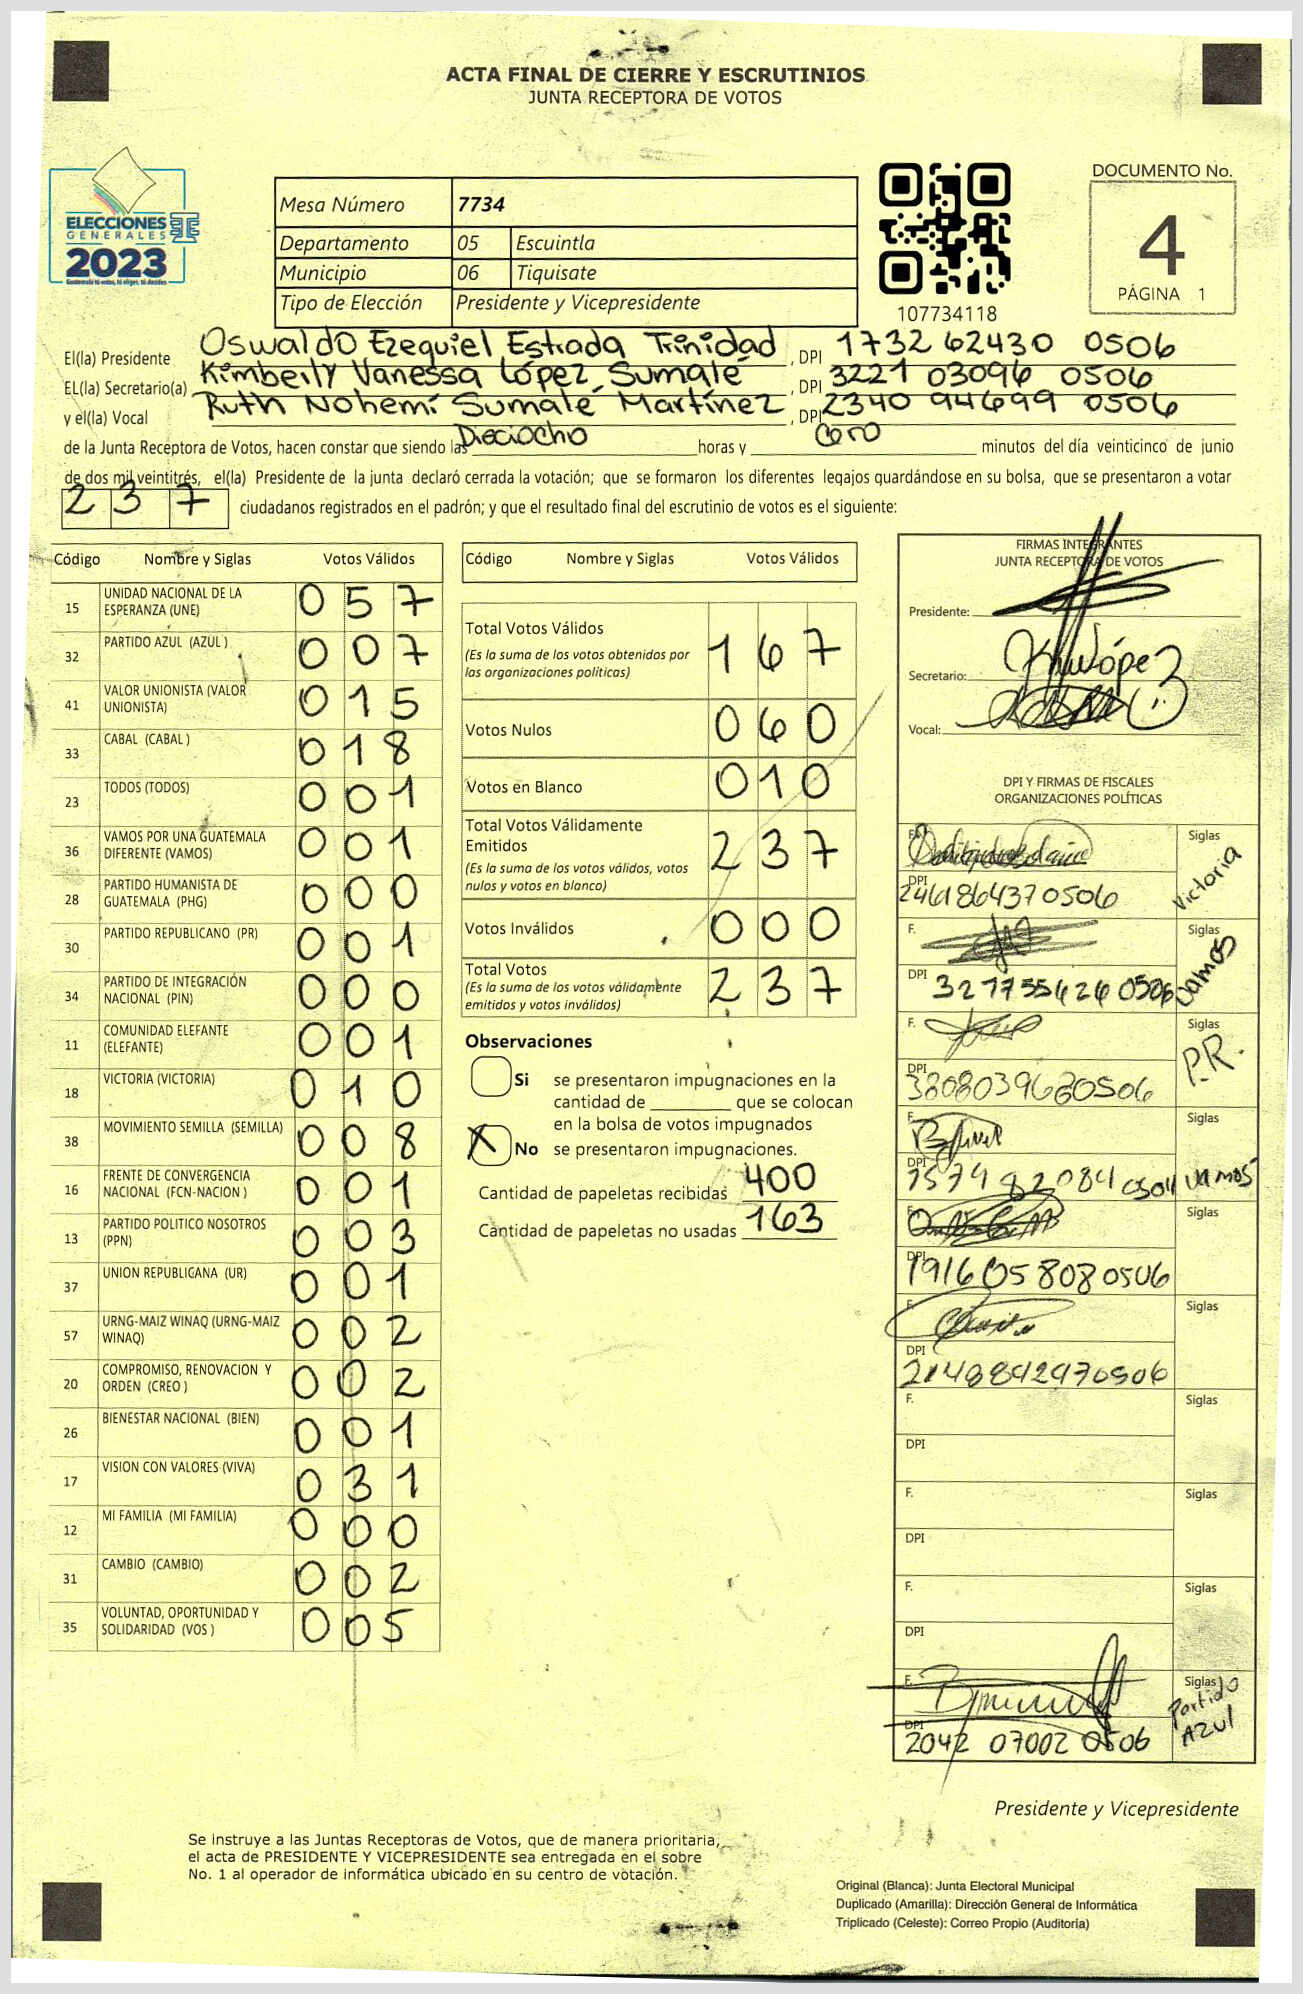 ACTA FINAL DE CIERRE Y ESCRUTINIOS
JUNTA RECEPTORA DE VOTOS
ELECCIONES
GENERALES
2023
Guatemala tú votas, tú eliges, tú decides
Mesa Número 7734
Departamento 05 Escuintla
Municipio 06 Tiquisate
Tipo de Elección Presidente y Vicepresidente
107734118
DOCUMENTO No.
4
PÁGINA 1
El(la) Presidente Oswaldo Ezequiel Estrada Trinidad, DPI 1732 62430 0506
EL(la) Secretario(a) Kimberly Vanessa López Sumalé, DPI 3221 03096 0506
y el(la) Vocal Ruth Nohemí Sumalé Martínez, DPI 2340 94699 0506
de la Junta Receptora de Votos, hacen constar que siendo las Dieciocho horas y Cero minutos del día veinticinco de junio
de dos mil veintitrés, el(la) Presidente de la junta declaró cerrada la votación; que se formaron los diferentes legajos guardándose en su bolsa, que se presentaron a votar
237 ciudadanos registrados en el padrón; y que el resultado final del escrutinio de votos es el siguiente:
Código Nombre y Siglas Votos Válidos
15 UNIDAD NACIONAL DE LA ESPERANZA (UNE) 057
32 PARTIDO AZUL (AZUL ) 007
41 VALOR UNIONISTA (VALOR UNIONISTA) 015
33 CABAL (CABAL ) 018
23 TODOS (TODOS) 001
36 VAMOS POR UNA GUATEMALA DIFERENTE (VAMOS) 001
28 PARTIDO HUMANISTA DE GUATEMALA (PHG) 000
30 PARTIDO REPUBLICANO (PR) 001
34 PARTIDO DE INTEGRACIÓN NACIONAL (PIN) 000
11 COMUNIDAD ELEFANTE (ELEFANTE) 001
18 VICTORIA (VICTORIA) 010
38 MOVIMIENTO SEMILLA (SEMILLA) 008
16 FRENTE DE CONVERGENCIA NACIONAL (FCN-NACION ) 001
13 PARTIDO POLITICO NOSOTROS (PPN) 003
37 UNION REPUBLICANA (UR) 001
57 URNG-MAIZ WINAQ (URNG-MAIZ WINAQ) 002
20 COMPROMISO, RENOVACION Y ORDEN (CREO ) 002
26 BIENESTAR NACIONAL (BIEN) 001
17 VISION CON VALORES (VIVA) 031
12 MI FAMILIA (MI FAMILIA) 000
31 CAMBIO (CAMBIO) 002
35 VOLUNTAD, OPORTUNIDAD Y SOLIDARIDAD (VOS ) 005
Código Nombre y Siglas Votos Válidos
Total Votos Válidos 167
(Es la suma de los votos obtenidos por
las organizaciones políticas)
Votos Nulos 060
Votos en Blanco 010
Total Votos Válidamente
Emitidos 237
(Es la suma de los votos válidos, votos
nulos y votos en blanco)
Votos Inválidos 000
Total Votos 237
(Es la suma de los votos válidamente
emitidos y votos inválidos)
Observaciones
Si se presentaron impugnaciones en la
cantidad de ________ que se colocan
en la bolsa de votos impugnados
X No se presentaron impugnaciones.
Cantidad de papeletas recibidas 400
Cantidad de papeletas no usadas 163
FIRMAS INTEGRANTES
JUNTA RECEPTORA DE VOTOS
Presidente:
Secretario:
Vocal:
DPI Y FIRMAS DE FISCALES
ORGANIZACIONES POLÍTICAS
F. Siglas Victoria
DPI 2461864370506
F. Siglas Vamos
DPI
F. Siglas P.R.
DPI
F. Siglas Vamos
DPI
F. Siglas
DPI 1916058080506
F. Siglas
DPI 2148892970506
F. Siglas
DPI
F. Siglas
DPI
F. Siglas
DPI
F. Siglas Partido Azul
DPI 2042 07002 0506
Presidente y Vicepresidente
Se instruye a las Juntas Receptoras de Votos, que de manera prioritaria,
el acta de PRESIDENTE Y VICEPRESIDENTE sea entregada en el sobre
No. 1 al operador de informática ubicado en su centro de votación.
Original (Blanca): Junta Electoral Municipal
Duplicado (Amarilla): Dirección General de Informática
Triplicado (Celeste): Correo Propio (Auditoría)